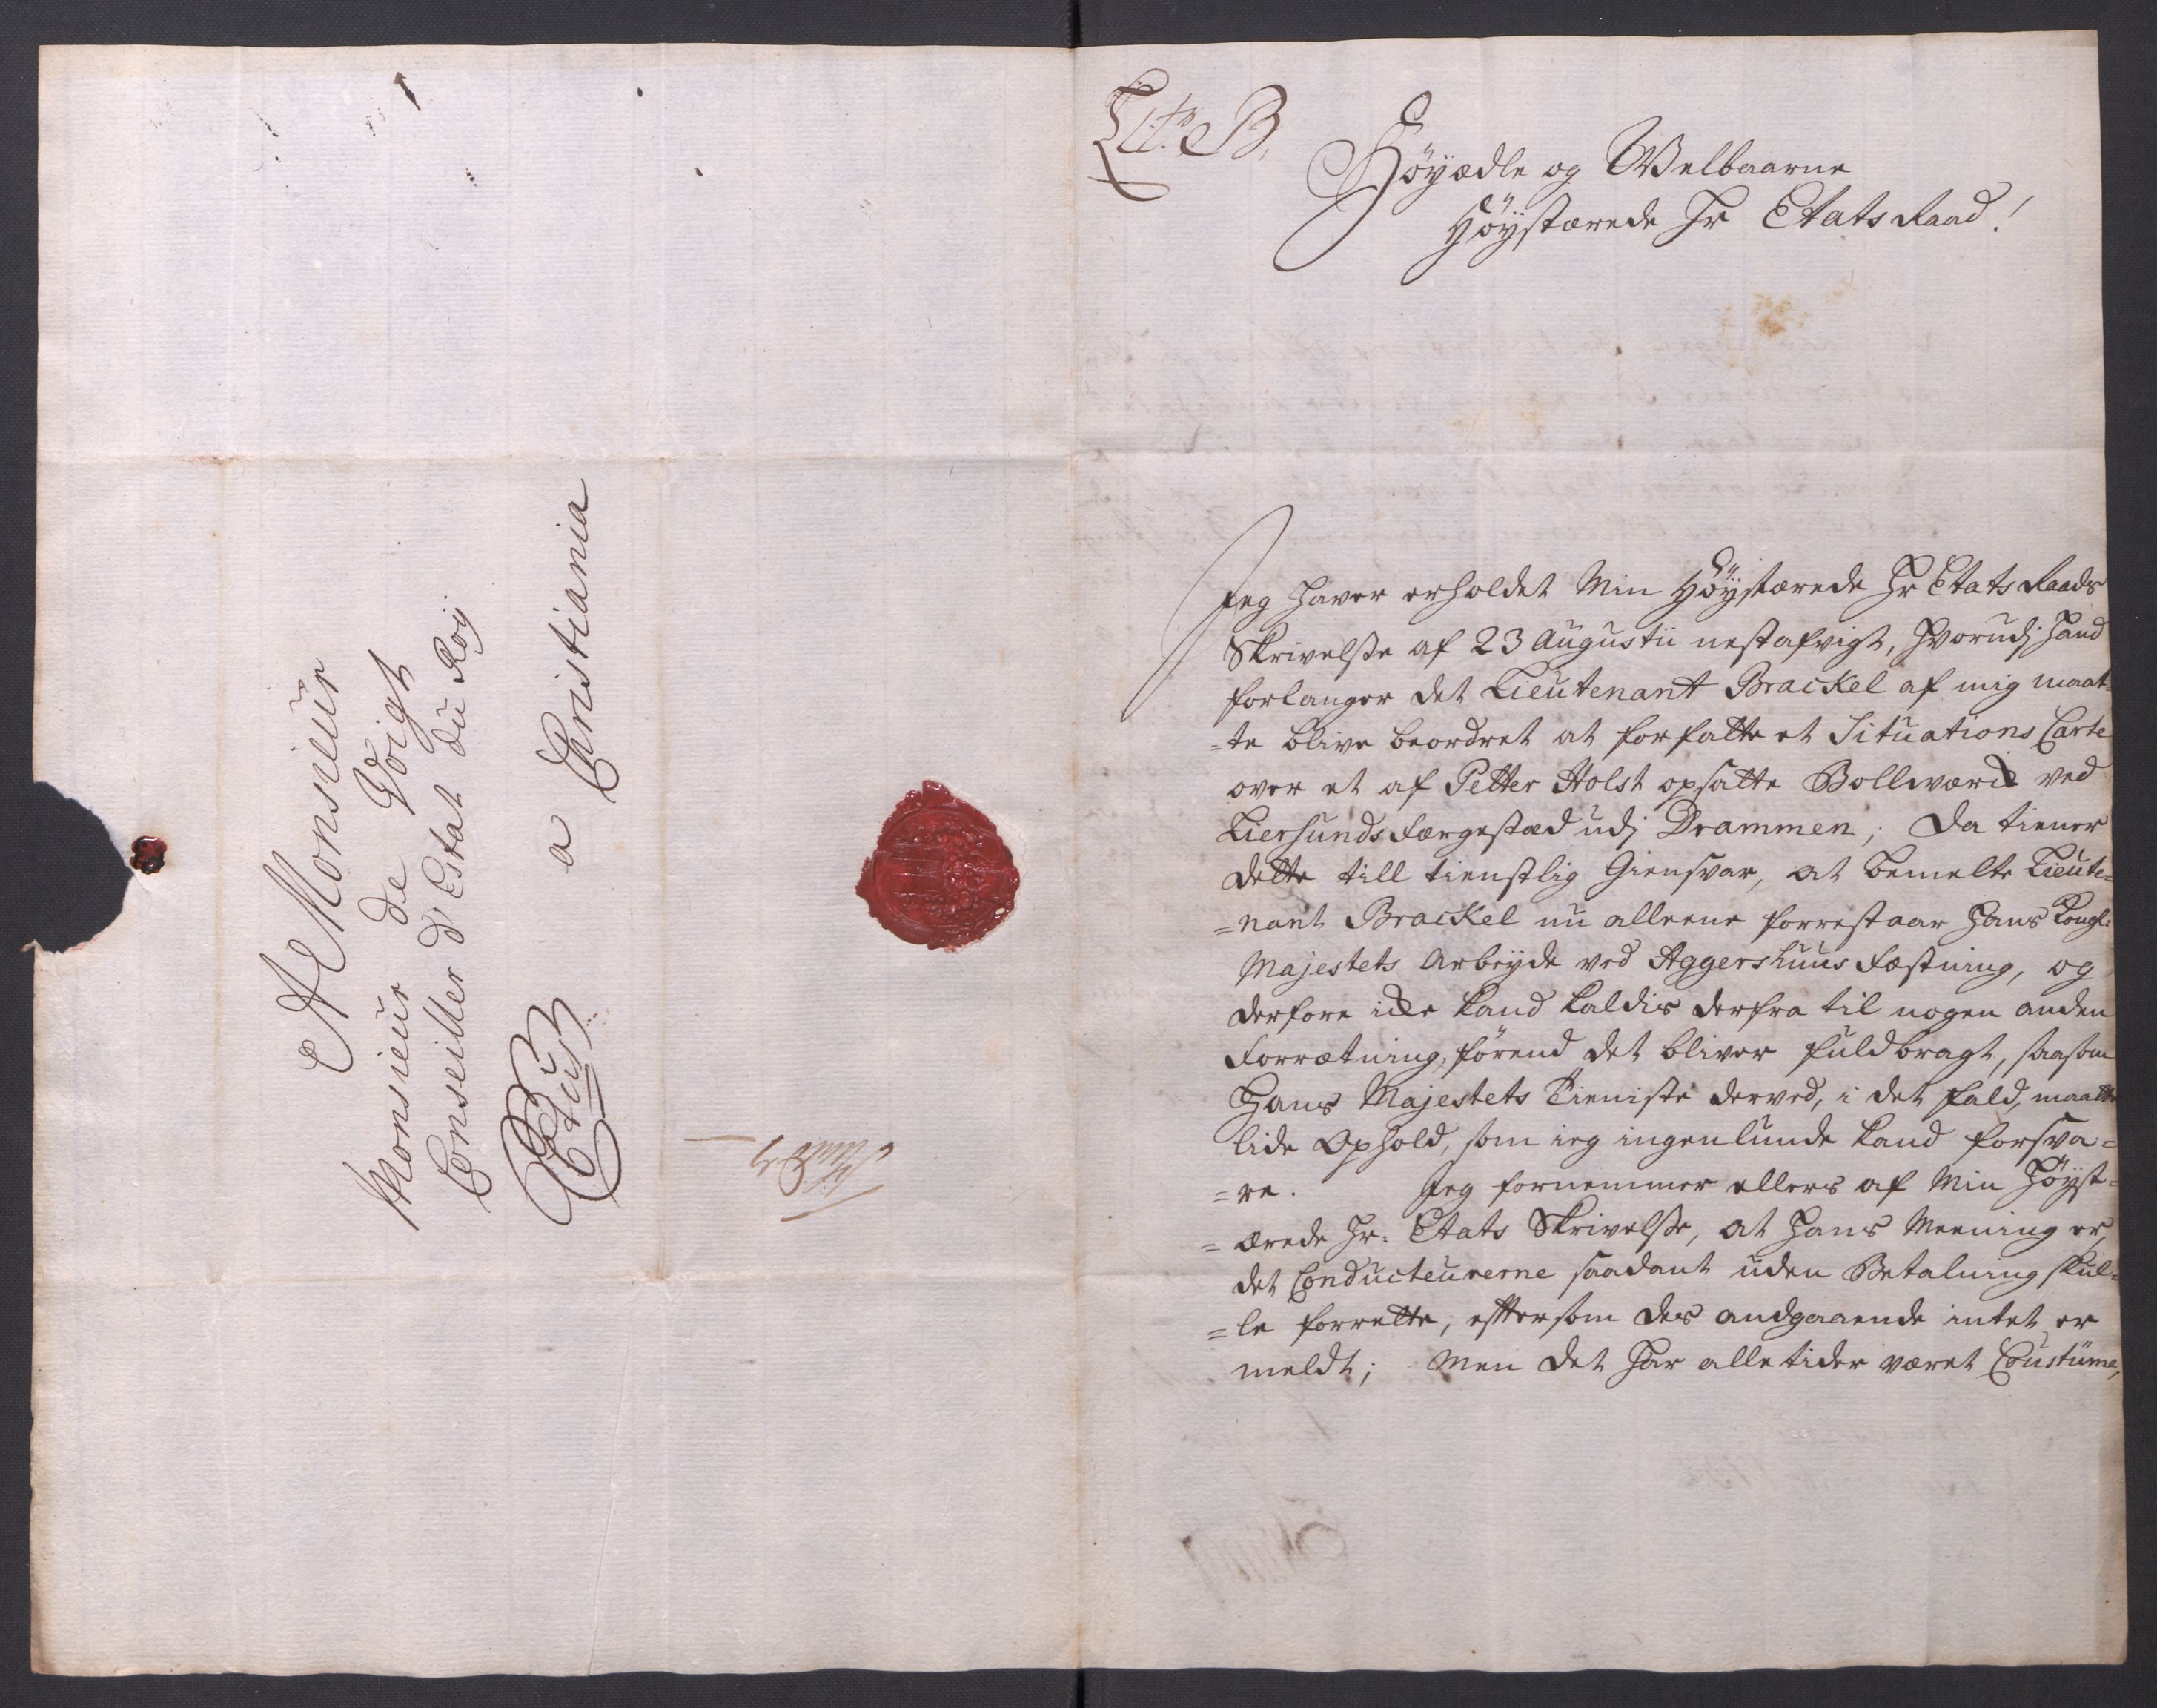 A Monsieur
Monsieur de Voigt
Conseiller d'Estat du Roÿ
a Christiania
Litr. B.
Höÿædle og Welbaarne
Höÿstærede Hr Etats Raad!
Jeg haver erholdet Min Höÿstærede Hr Etats Raads
Skrivelsse af 23 Augustii nestafvigt, hvorudj hand
forlanger det Lieutenant Brackel af mig maat-
=te blive beordret at forfatte et Situations Carte
over et af Petter Holst opsatte Bollwærck ved
Liersunds færgestæd udj Drammen; Da tiener
dette till tienstlig Giensvar, at bemelte Lieute=
=nant Brackel nu alleene forrestaar Hans Kongl:
Majestets Arbeyde ved Aggershuus fæstning, og
derfore icke kand kaldis derfra til nogen anden
Forrætning, förend det bliver fuldbragt, saasom
Hans Majestets Tieniste derved, i det fald, maatte
lide Ophold, som ieg ingenlunde kand forsva=
=re. Jeg fornemmer ellers af Min Höÿst=
=ærede Hr: Etats Skrivelsse, at Hans Meening er,
det Conducteurerne saadant uden Betalning skul=
=le forrette, efftersom des andgaaende intet er
meldt; Men det har alletider været Coustüme,